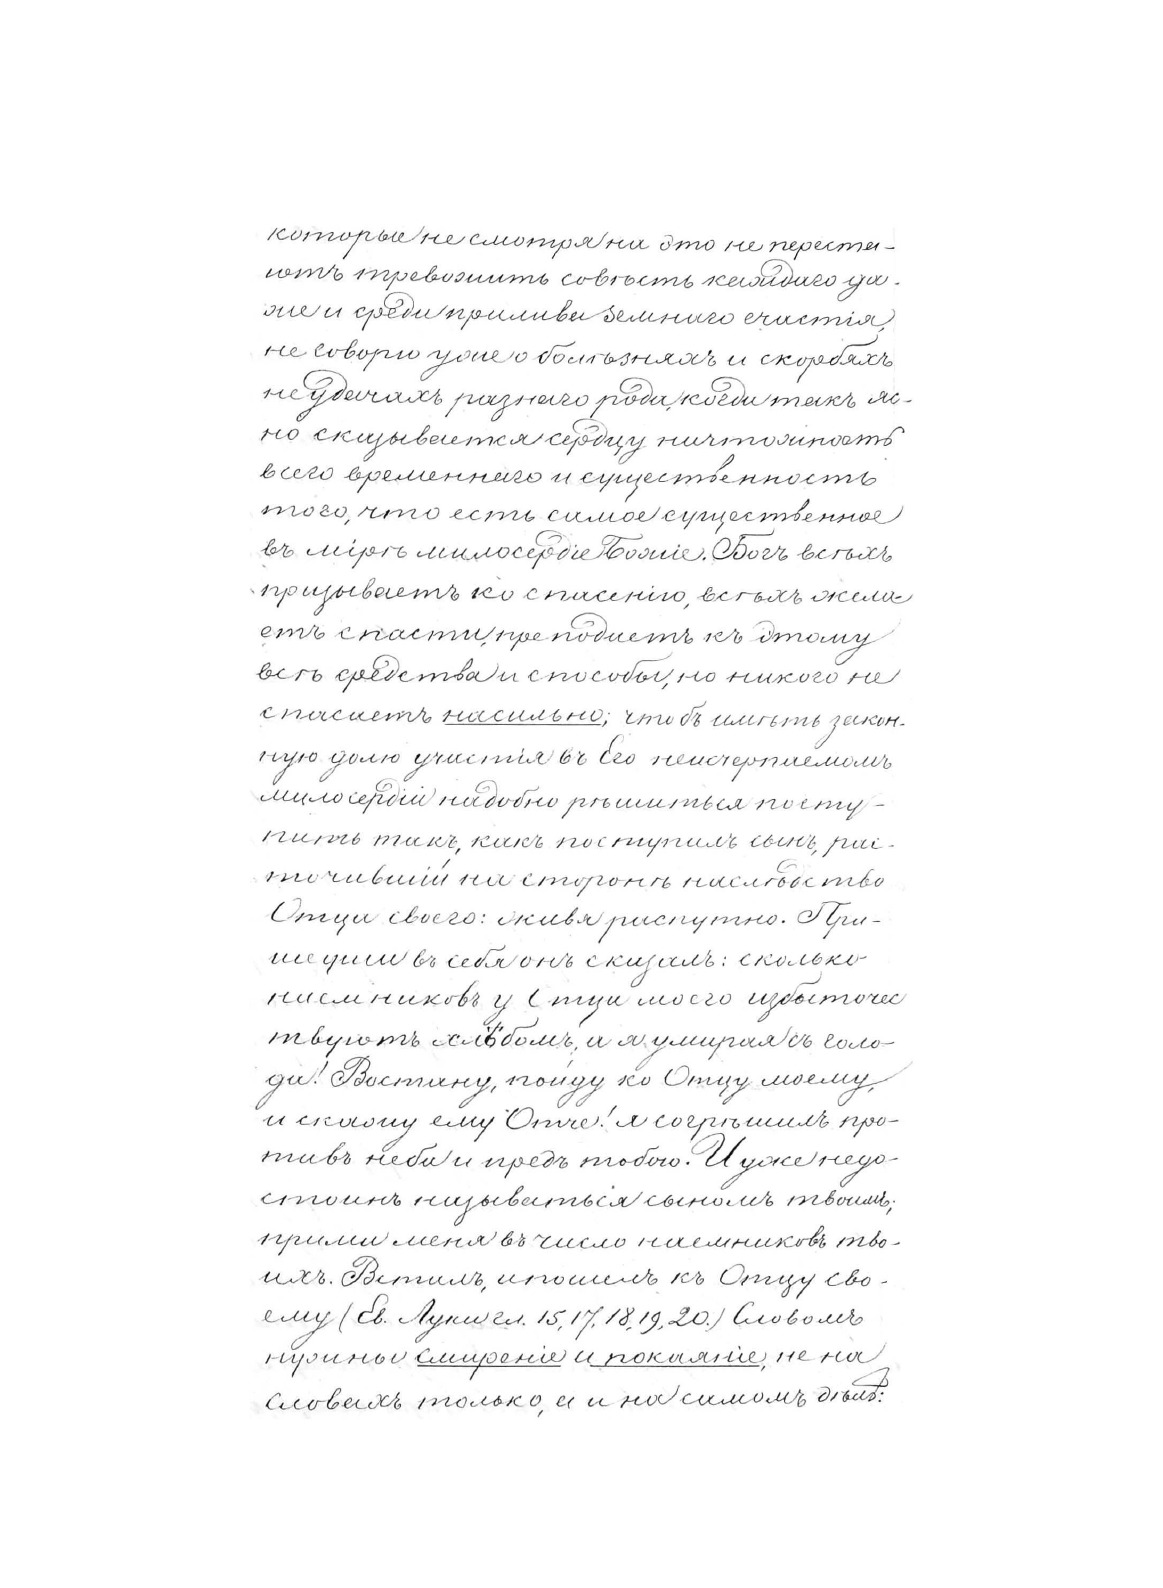 которые не смотря на это не переста-
ютъ тревожить совѣсть каждаго да-
же и среди прилива земнаго счастія,
не говорю уже о болѣзняхъ и скорбяхъ
неудачахъ разнаго рода, когда такъ яс-
но сказывается сердцу ничтожность
всего временнаго и существенность
того, что есть самое существенное
въ мірѣ милосердіе Божіе. Богъ всѣхъ
призываетъ ко спасенію, всѣхъ жела-
етъ спасти, преподаетъ къ этому
всѣ средства и способы, но никого не
спасаетъ насильно; чтобъ имѣть закон-
ную долю участія въ Его неисчерпаемомъ
милосердіи надобно рѣшиться посту-
пить такъ, какъ поступилъ сынъ, рас-
точившій на сторонѣ наслѣдство
Отца своего: живя распутно. При-
шедши въ себя онъ сказалъ: сколько
наемниковъ у Отца моего избыточес
твуютъ хлѣбомъ, а я умирая съ голо-
да! Востану, пойду ко Отцу моему,
и скажу ему Отче! я согрѣшилъ про-
тивъ неба и предъ тобою. И уже недо-
стоинъ называться сыномъ твоимъ;
прими меня въ число наемниковъ тво-
ихъ. Всталъ, и пошелъ къ Отцу сво-
ему (Ев. Луки гл. 15, 17, 18, 19, 20.) Словомъ
нужны смиреніе и покаяніе, не на
словахъ только, а и на самомъ дѣлѣ: